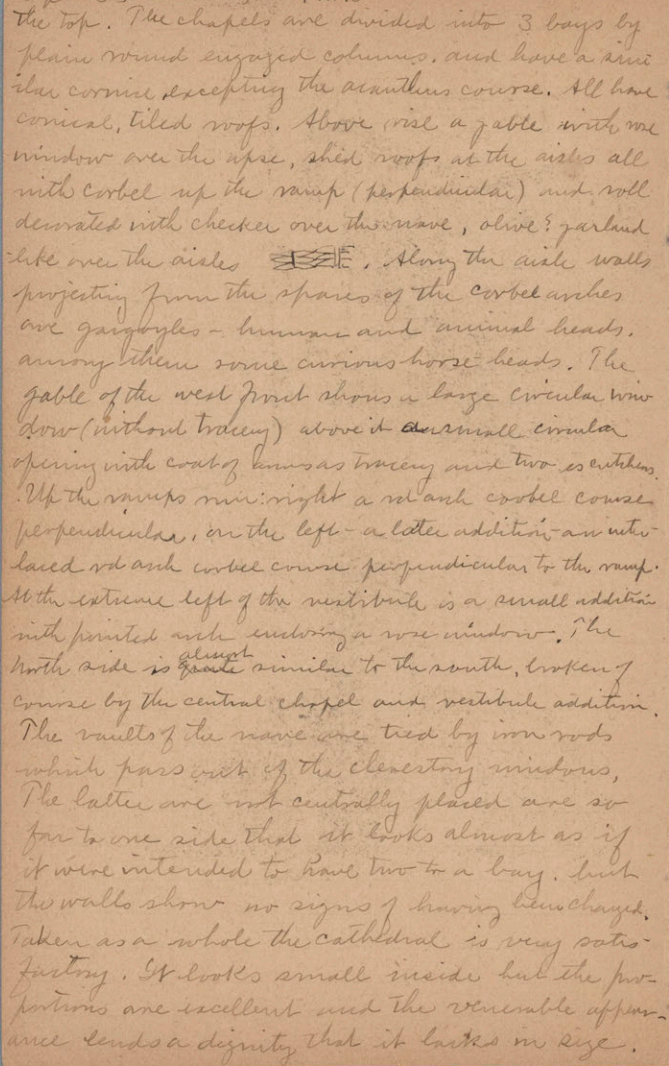 the top. The chapels are divided into 3 bays by
plain round engaged columns, and have a simi
ilar cornice, excepting the acanthus course. All have
conical, tiled roofs. Above rise a gable with rose
window over the apse, shed roofs at the aisles all
with corbel up the ramp (perpendicular) and roll
decorated with checker over the nave, olive? garland
-like over the aisles . Along the aisle walls
projecting from the spaces of the corbel arches
are gargoyles - human and animal heads.
among them some curious horse heads. The
gable of the west front shows a large circular win
dow (without tracery) above it a small circular
opening with coat of arms as tracery and two escutcheons.
Up the ramps run: right a rd arch corbel course
perpendicular, on the left - a later addition - an inter-
laced rd arch corbel course perpendicular to the ramp.
At the extreme left of the vestibule is a small addition
with pointed arch enclosing a rose window. The
north side is almost similar to the south, broken of
course by the central chapel and vestibule addition.
The vaults of the nave are tied by iron rods
which pass out of the clerestory windows,
The latter are not centrally placed are so
far to one side that it looks almost as if
it were intended to have two to a bay, but
the walls show no signs of having been changed.
Taken as a whole the cathedral is very satis-
factory. It looks small inside but the pro-
portions are excellent and the venerable appear-
ance lends a dignity that it lacks in size.